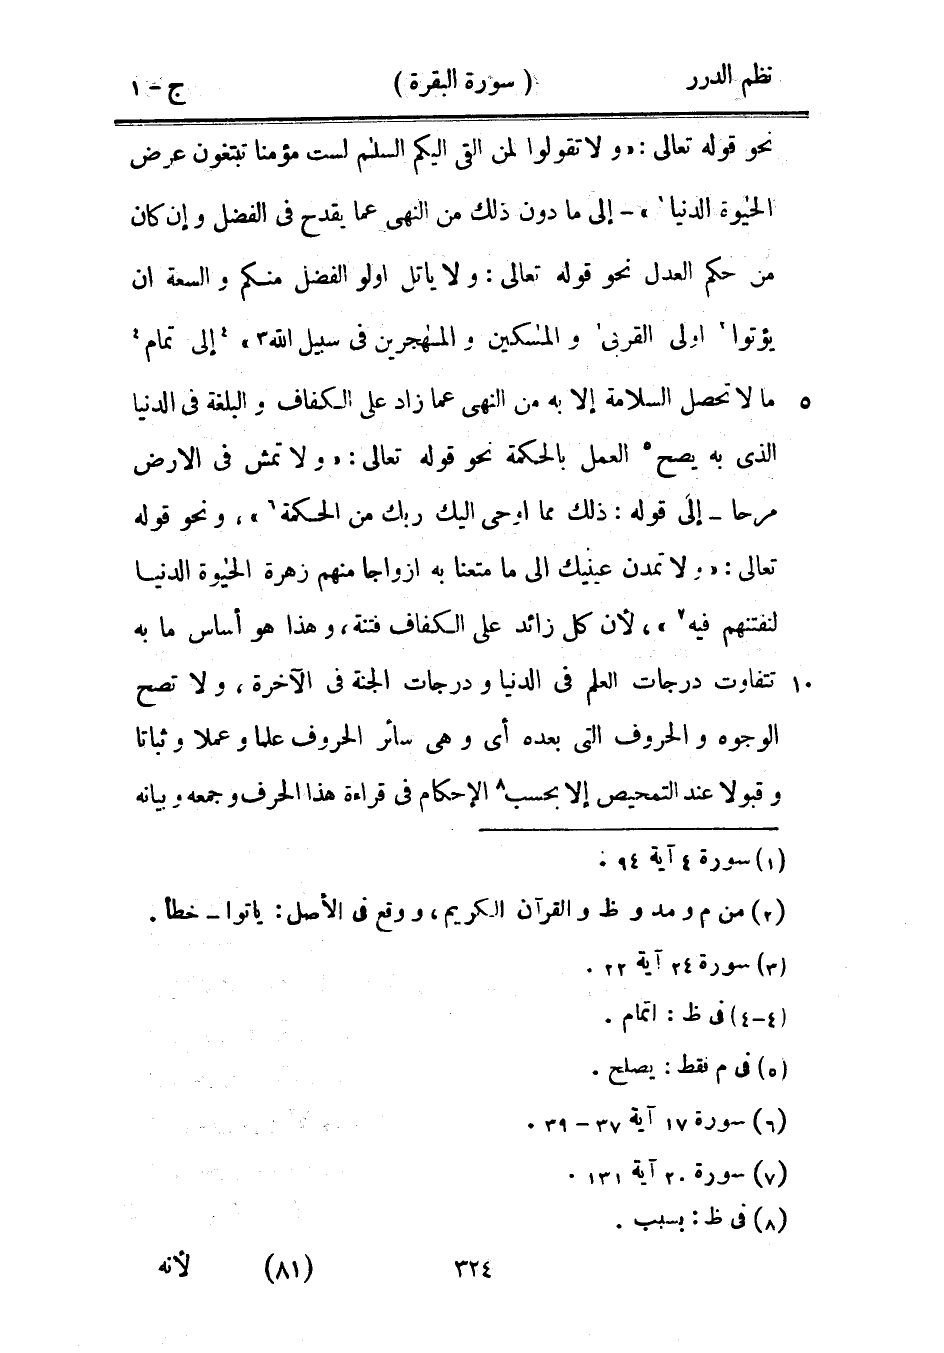 نظم الدرر ( سورة البقرة ) ج - ١
نحو قوله تعالى : « و لا تقولوا لمن القى اليكم السلٰم لست مؤمنا تبتغون عرض
الحيٰوة الدنيا ١ » – إلى ما دون ذلك من النهى عما يقدح فى الفضل و إن كان
من حكم العدل نحو قوله تعالى : و لا ياتل اولو الفضل منكم و السعة ان
يؤتوا ٢ اولى القربى و المسٰكين و المهٰجرين فى سبيل الله ٣ » ٤ إلى تمام ٤
٥ ما لا تحصل السلامة إلا به من النهى عما زاد على الكفاف و البلغة فى الدنيا
الذى به يصح ٥ العمل بالحكمة نحو قوله تعالى : « و لا تمش فى الارض
مرحا – إلى قوله : ذلك مما اوحى اليك ربك من الحكمة ٦ » ، و نحو قوله
تعالى : « و لا تمدن عينيك الى ما متعنا به ازواجا منهم زهرة الحيٰوة الدنيا
لنفتنهم فيه ٧ » ، لأن كل زائد على الكفاف فتنة ، و هذا هو أساس ما به
١٠ تتفاوت درجات العلم فى الدنيا و درجات الجنة فى الآخرة ، و لا تصح
الوجوه و الحروف التى بعده أى و هى سائر الحروف علما و عملا و ثباتا
و قبولا عند التمحيص إلا بحسب ٨ الإحكام فى قراءة هذا الحرف و جمعه و بيانه
(١) سورة ٤ آية ٩٤ .
(٢) من م و مد و ظ و القرآن الكريم ، و وقع فى الأصل : ياتوا – خطأ .
(٣) سورة ٢٤ آية ٢٢ .
(٤-٤) فى ظ : اتمام .
(٥) فى م فقط : يصلح .
(٦) سورة ١٧ آية ٣٧ – ٣٩ .
(٧) سورة ٢٠ آية ١٣١ .
(٨) فى ظ : بسبب .
٣٢٤ (٨١) لأنه